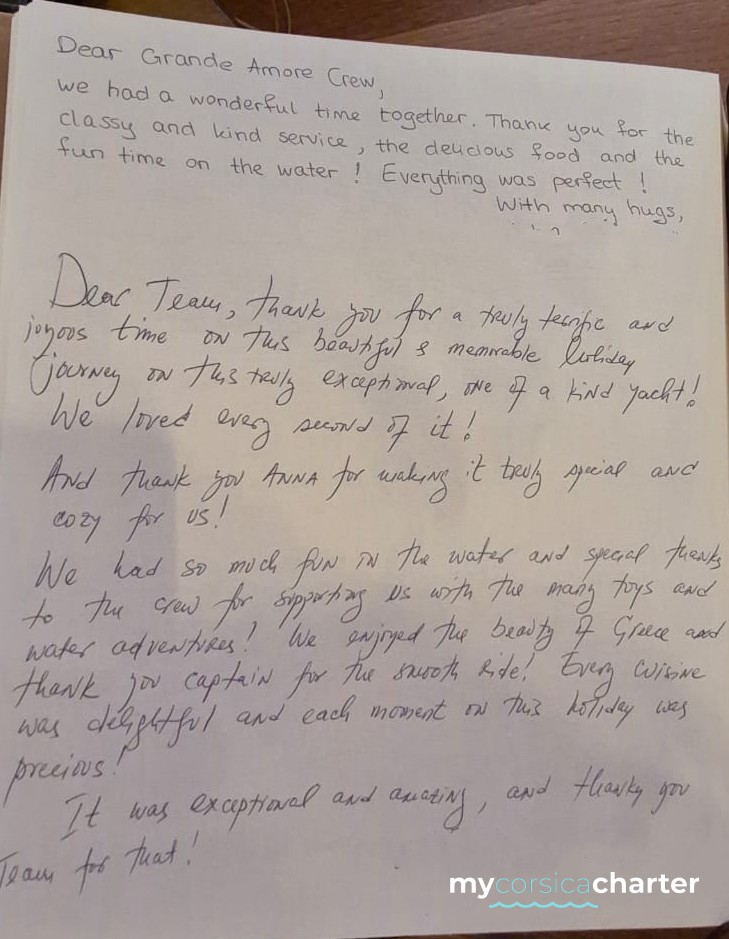 Dear Grande Amore Crew,
we had a wonderful time together. Thank you for the
classy and kind service, the delicious food and the
fun time on the water! Everything was perfect!
With many hugs,
Dear Team, thank you for a truly terrific and
joyous time on this beautiful & memorable holiday
journey on this truly exceptional, one of a kind yacht!
We loved every second of it!
And thank you ANNA for making it truly special and
cozy for us!
We had so much fun in the water and special thanks
to the crew for supporting us with the many toys and
water adventures! We enjoyed the beauty of Greece and
thank you captain for the smooth ride! Every cuisine
was delightful and each moment on this holiday was
precious!
It was exceptional and amazing, and thanky you
Team for that!
mycorsicacharter